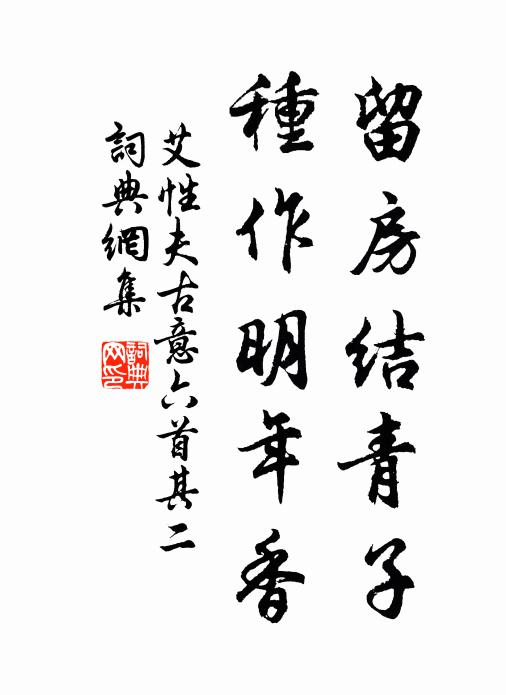 留房結青子
種作明年香
艾性夫古意六首其二
詞典網集
詞典網印